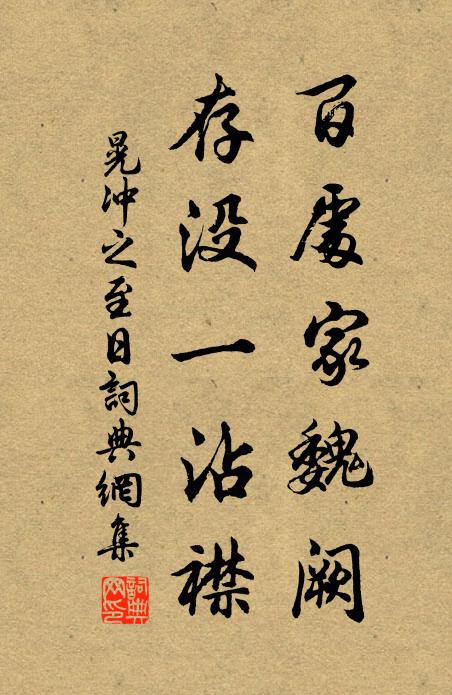 百處家魏闕
存没一沾襟
晁冲之至日詞典網集
詞典
网印